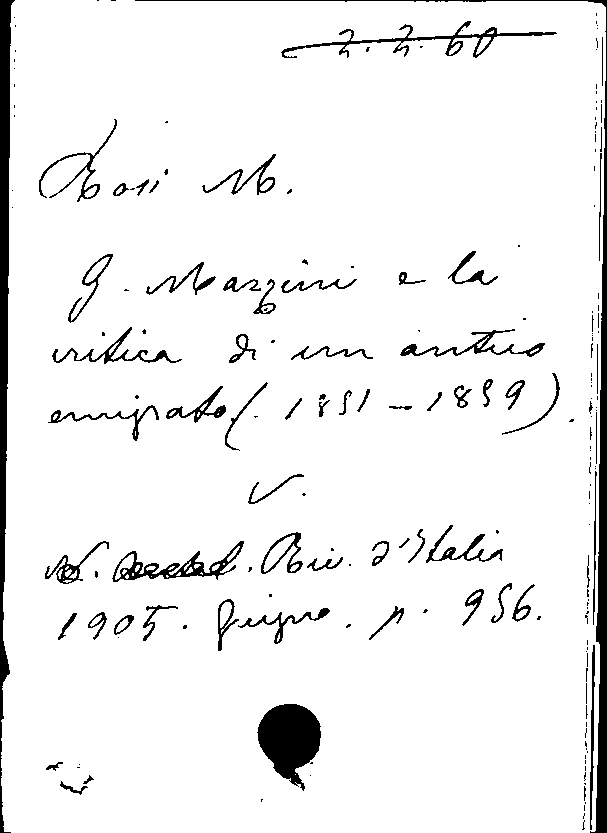 2.2.60
Rosi M.
G. Mazzini e la
critica di un antico
emigrato (. 1851 - 1859).
V.
Riv. d'Italia
1905. Giugno. p. 956.